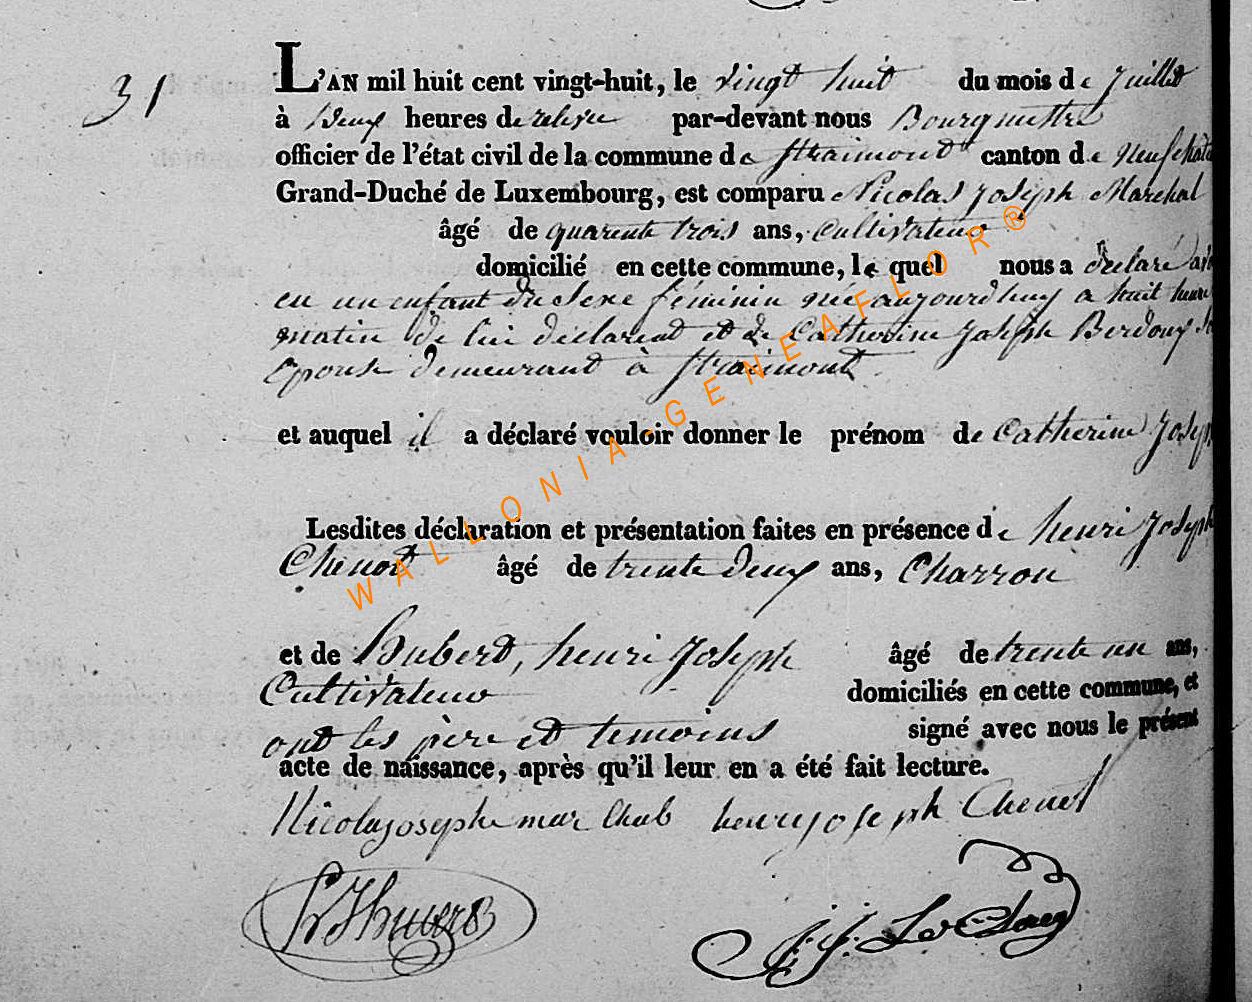 31
L'AN mil huit cent vingt-huit, le vingt huit du mois de juillet
à Deux heures de relevée par-devant nous Bourguettre
officier de l'état civil de la commune de Straimont canton de Neufchâte
Grand-Duché de Luxembourg, est comparu Nicolas Joseph Marchal
âgé de quarente trois ans, Cultivateur
domicilié en cette commune, le quel nous a declaré avoi
eu un enfant du sexe féminin née aujourdhuy a huit heure
matin de lui déclarent et de Catherine Joseph Berdoux
épouse demeurant à Straimont
et auquel il a déclaré vouloir donner le prénom de Catherine Joseph
Lesdites déclaration et présentation faites en présence de henri Joseph
Chenot âgé de trente deux ans, Charron
et de Hubert, henri Joseph âgé de trente un ans,
Cultivateur domiciliés en cette commune, et
ont les père et temoins signé avec nous le présent
acte de naissance, après qu'il leur en a été fait lecture.
Nicolas joseph mar Chal henry joseph Chenot
WALLONIA-GENEAFLOR®